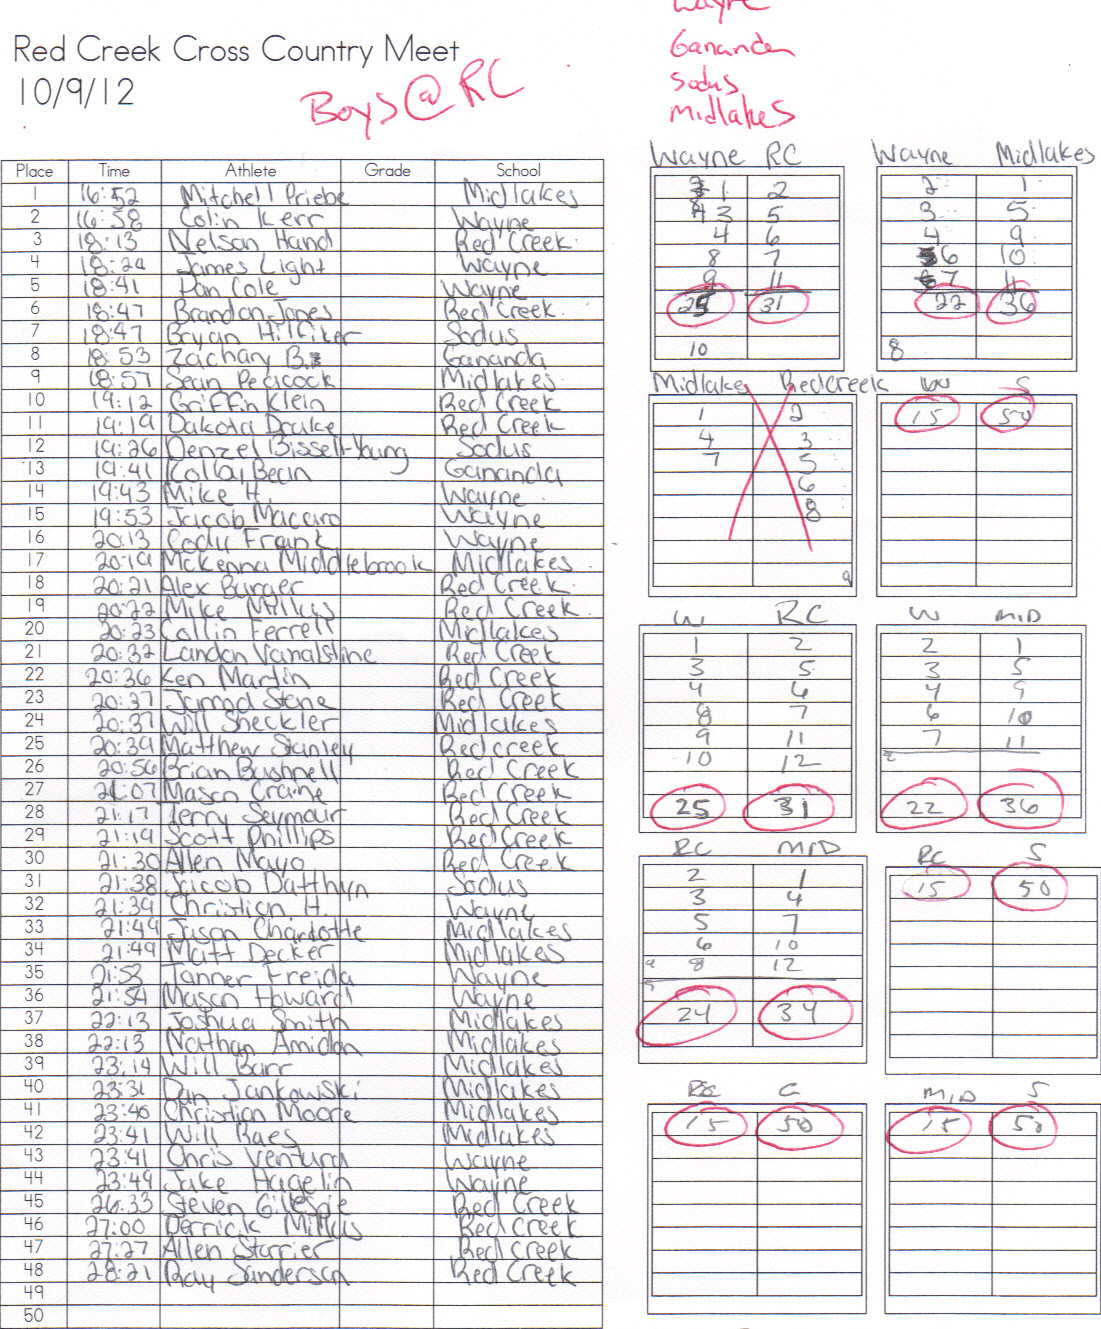 Wayne
Red Creek Cross Country Meet
Gananda
10/9/12
Boys @ RC
Sodus
Midlakes
Place Time Athlete Grade School
1 16:52 Mitchell Priebe Midlakes
2 16:58 Colin Kerr Wayne
3 18:13 Nelson Hand Red Creek
4 18:20 James Light Wayne
5 18:41 Dan Cole Wayne
6 18:47 Brandon Jones Red Creek
7 18:47 Bryan Hilfiker Sodus
8 18:53 Zachary B. Gananda
9 18:57 Sean Peacock Midlakes
10 19:12 Griffin Klein Red Creek
11 19:19 Dakota Drake Red Creek
12 19:26 Denzel Bissell-Young Sodus
13 19:41 Kolby Bean Gananda
14 19:43 Mike H. Wayne
15 19:53 Jacob Macaro Wayne
16 20:13 Cody Frank Wayne
17 20:19 Mckenna Middlebrook Midlakes
18 20:21 Alex Burger Red Creek
19 20:22 Mike Milkus Red Creek
20 20:23 Collin Ferrell Midlakes
21 20:32 Landon Vanalstine Red Creek
22 20:36 Ken Martin Red Creek
23 20:37 Jarrod Stone Red Creek
24 20:37 Will Sheckler Midlakes
25 20:39 Matthew Stanley Red creek
26 20:56 Brian Bushnell Red Creek
27 21:07 Mason Craine Red Creek
28 21:17 Jerry Seymour Red Creek
29 21:19 Scott Phillips Red Creek
30 21:30 Allen Mayo Red Creek
31 21:38 Jacob Datthyn Sodus
32 21:39 Christian H. Wayne
33 21:49 Jason Charlotte Midlakes
34 21:49 Matt Decker Midlakes
35 21:53 Tanner Freida Wayne
36 21:54 Mason Howard Wayne
37 22:13 Joshua Smith Midlakes
38 22:13 Nathan Amidon Midlakes
39 23:14 Will Barr Midlakes
40 23:31 Dan Jankowski Midlakes
41 23:40 Christian Moore Midlakes
42 23:41 Will Raes Midlakes
43 23:41 Chris Ventura Wayne
44 23:49 Jake Hagelin Wayne
45 26:33 Steven Gillespie Red Creek
46 27:00 Derrick Milkus Red Creek
47 27:27 Allen Starrier Red Creek
48 28:21 Ray Sanderson Red Creek
49
50
Wayne RC
1 2
3 5
4 6
8 7
9 11
25 31
10
Wayne Midlakes
2 1
3 5
4 9
6 10
7 11
22 36
8
Midlakes Redcreek
1 2
4 3
7 5
6
8
9
W S
15 50
W RC
1 2
3 5
4 6
8 7
9 11
10 12
25 31
W MID
2 1
3 5
4 9
6 10
7 11
22 36
RC MID
2 1
3 4
5 7
6 10
9 8 12
24 34
RC S
15 50
RC G
15 50
MID S
15 50